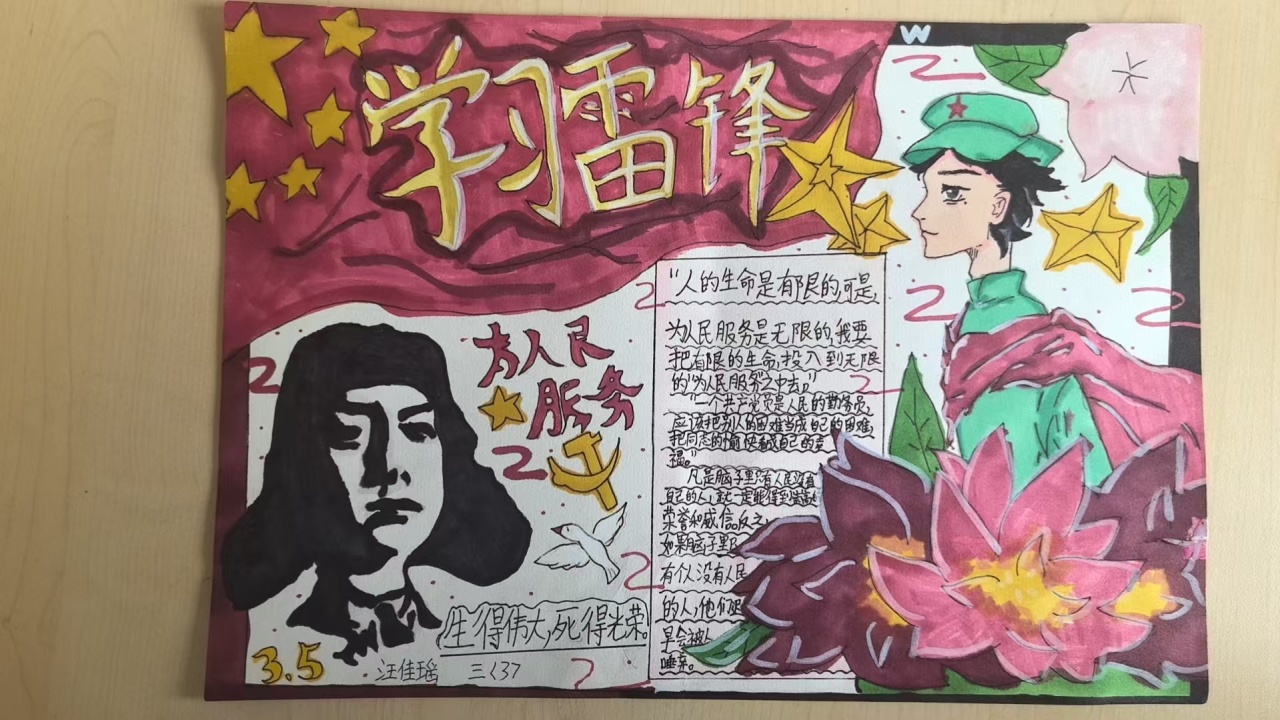 学习雷锋
W
为人民
服务
"人的生命是有限的,可是,
为人民服务是无限的,我要
把有限的生命投入到无限
的"为人民服务"之中去。"
"一个共产党员是人民的勤务员,
应该把别人的困难当成自己的困难,
把同志的愉快看成自己的幸
福。"
凡是脑子里只有人民没有
自己的人,就一定能得到崇高的
荣誉和威信。反之,
如果脑子里只
有个人没有人民
的人,他们迟
早会被人
唾弃。
生得伟大,死得光荣。
3.5
汪佳瑶 三〈37